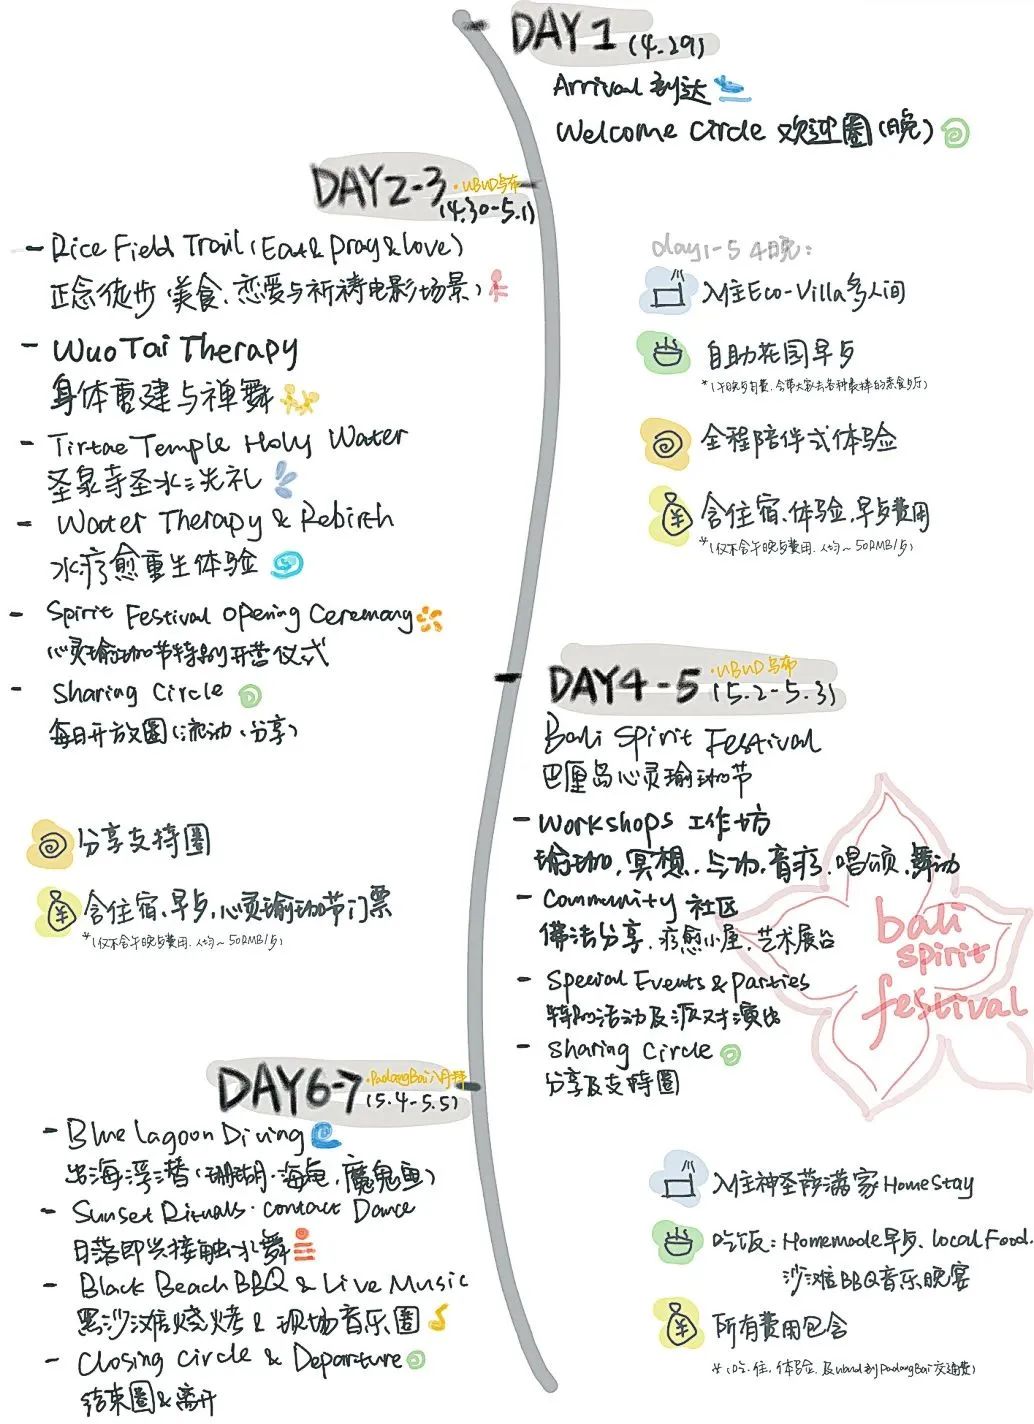 DAY 1 (4.29)
Arrival 到达
Welcome Circle 欢迎圈(晚)
DAY2-3 ·UBUD乌布
(4.30-5.1)
- Rice Field Trail (Eat & Pray & Love)
正念徒步(美食、恋爱与祈祷电影场景)
- Wuo Tai Therapy
身体重建与禅舞
- Tirtae Temple Holy Water
圣泉寺圣水洗礼
- Water Therapy & Rebirth
水疗愈重生体验
- Spirit Festival Opening Ceremony
心灵瑜珈节特别开营仪式
- Sharing Circle
每日开放圈(流动、分享)
day1-5 4晚:
入住Eco-Villa多人间
自助花园早歺
*(午晚歺自费、会带大家去各种最棒的素食歺厅)
全程陪伴式体验
含住宿、体验、早歺费用
*(仅不含午晚歺费用、人均~50RMB/歺)
分享支持圈
含住宿、早歺、心灵瑜珈节门票
*(仅不含午晚歺费用、人均~50RMB/歺)
DAY4-5 ·UBUD乌布
(5.2-5.3)
Bali Spirit Festival
巴厘岛心灵瑜珈节
- Workshops 工作坊
瑜珈、冥想、气功、音疗、唱颂、舞动
- Community 社区
佛法分享、疗愈小屋、艺术展台
- Special Events & Parties
特别活动及派对演出
- Sharing Circle
分享及支持圈
bali
spirit
festival
DAY6-7 ·PadangBai八丹拜
(5.4-5.5)
- Blue Lagoon Diving
出海浮潜(珊瑚·海龟、魔鬼鱼)
- Sunset Rituals·Contact Dance
日落即兴接触水舞
- Black Beach BBQ & Live Music
黑沙滩烧烤&现场音乐圈
- Closing Circle & Departure
结束圈&离开
入住神圣萨满家HomeStay
吃饭: Homemade早歺、Local Food.
沙滩BBQ音乐晚宴
所有费用包含
*(吃、住、体验、及ubud到PadangBai交通费)